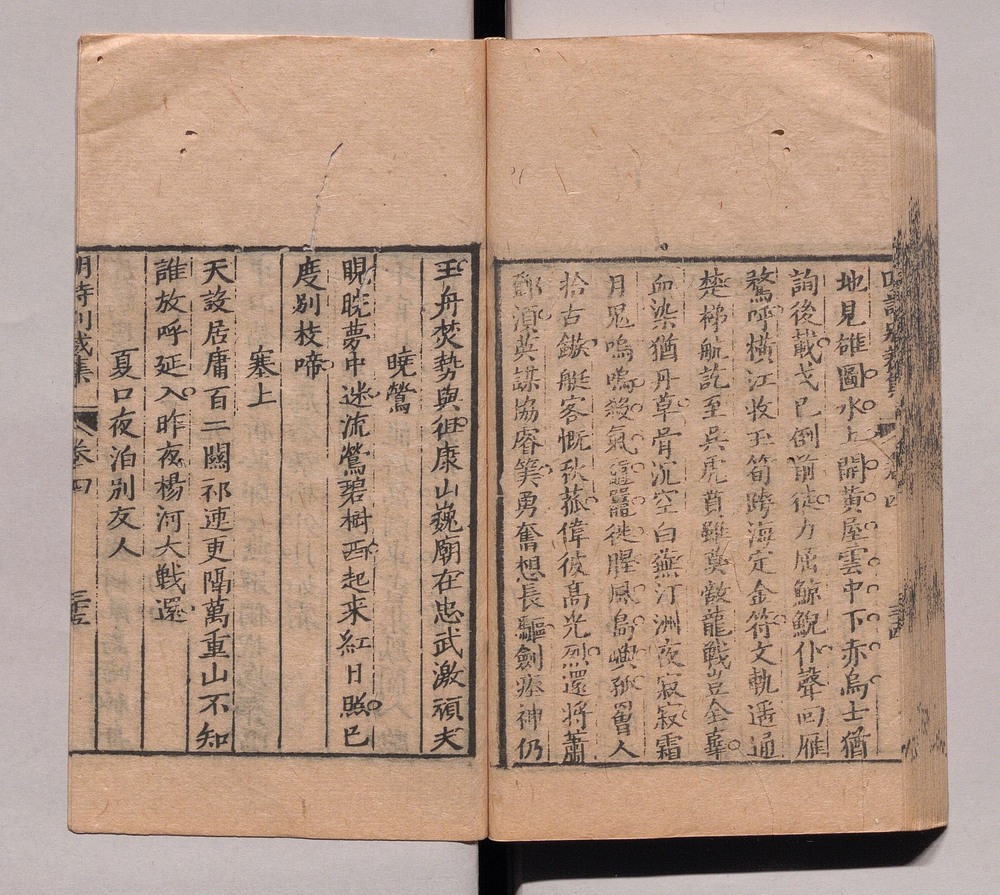 明詩别裁集 卷四 三十四
地見雄圖水上開黃屋雲中下赤烏士猶
詢後載戈已倒前徒力屈鯨鯢仆聲回雁
鶩呼橫江收玉筍跨海定金符文軌遥通
楚梯航訖至吳虎賁雖莫敵龍戰豈全辜
血染猶丹草骨沉空白蕪汀洲夜寂寂霜
月鬼嗚嗚殺氣黿鼉徙腥風島嶼孤罾人
拾古鏃艇客慨秋菰偉彼高光烈還將蕭
鄧須英謀協睿筭勇奮想長驅劍瘞神仍
王舟焚勢與徂康山巍廟在忠武激頑夫
曉鶯
睍睆夢中迷流鶯碧樹西起來紅日照已
度别枝啼
塞上
天設居庸百二關祁連更隔萬重山不知
誰放呼延入昨夜楊河大戰還
夏口夜泊别友人
明詩别裁集 卷四 三十五